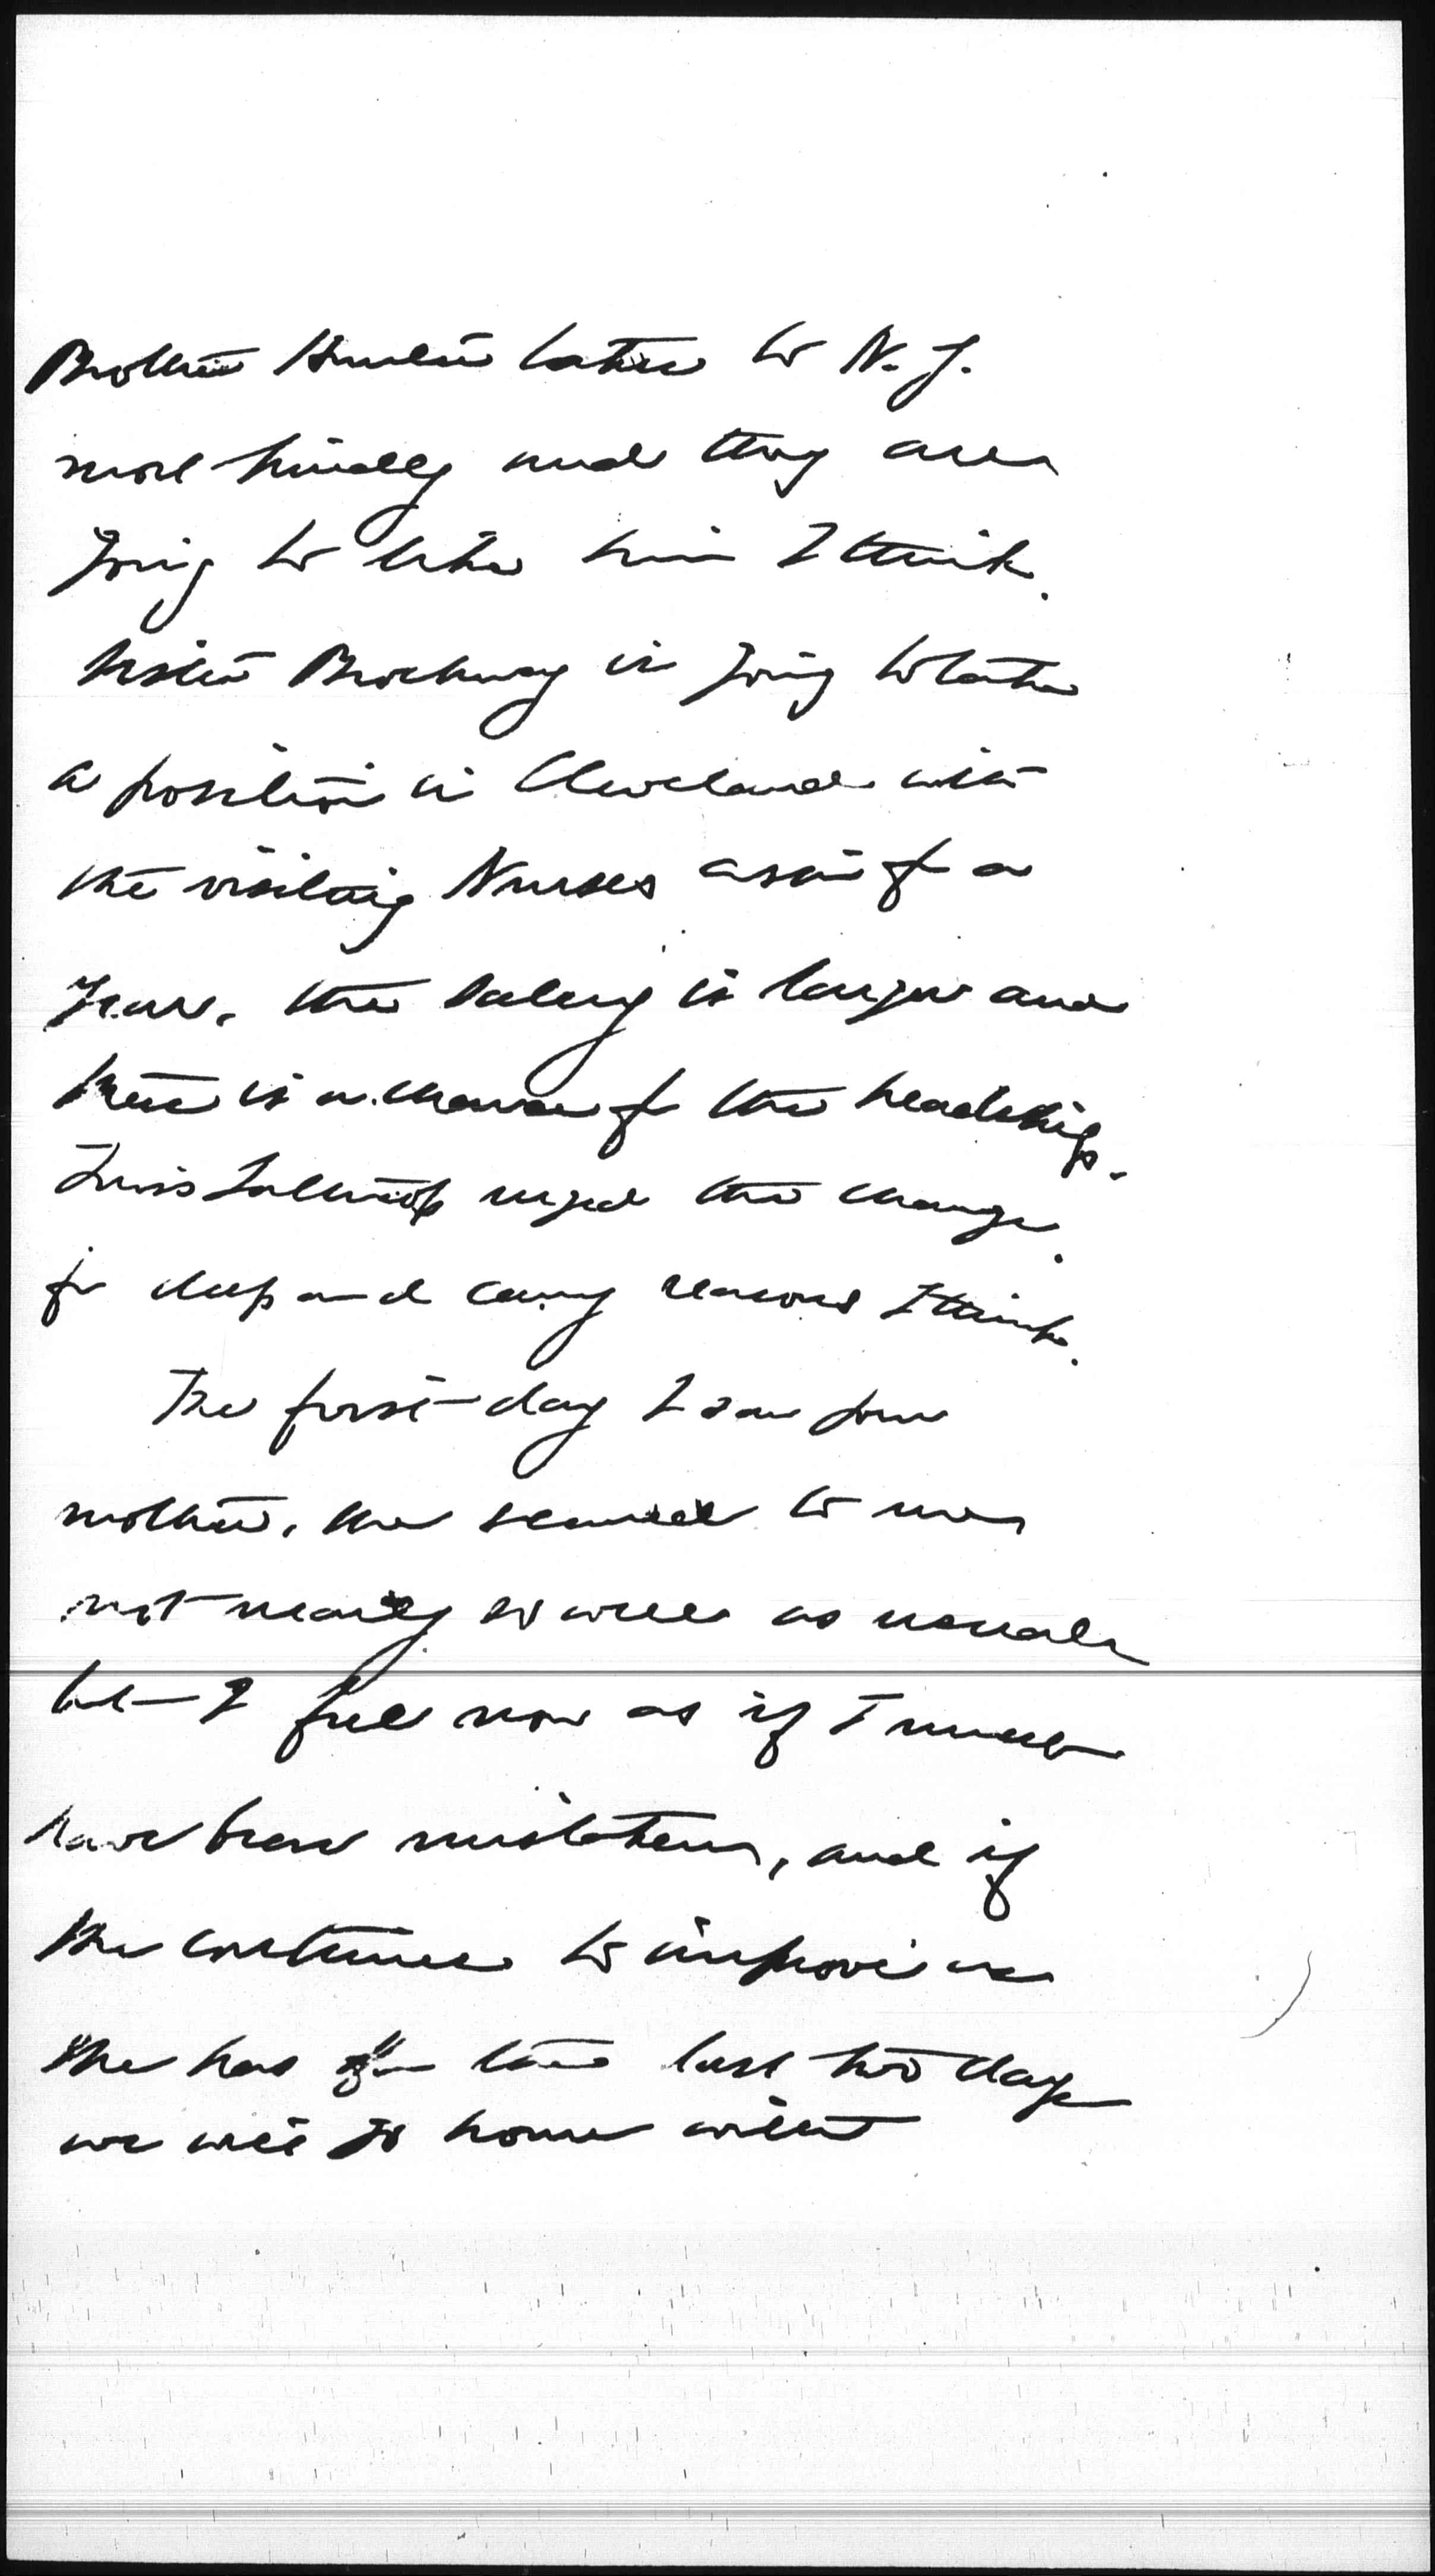 Brother takes to N. J.
more kindly and they are
going to like him I think.
Sister Brockway is going to take
a position in Cleveland with
the visiting Nurses assn for a
year. the salary is larger and
there is a chance for the headship.
urged the change.
for deep and canny reasons I think.
The first day I saw your
mother, she seemed to me
not nearly so well as usual
but I feel now as if I must
have been mistaken, and if
she continues to improve as
she has for the last two days
we will go home with